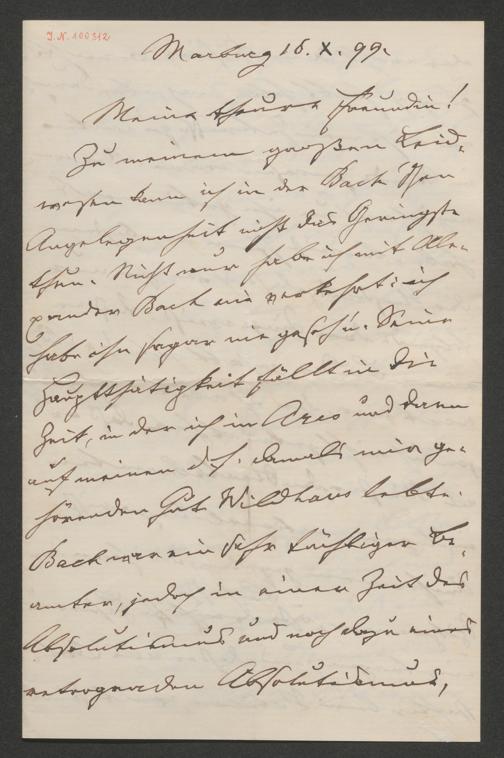 J.N. 100312
Marburg 16. X. 99.
Meine theure Freundin!
Zu meinem großen Leid-
wesen kann ich in der Bach'schen
Angelegenheit nicht das Geringste
thun. Nicht nur habe ich mit Ale-
xander Bach nie verkehrt: ich
habe ihn sogar nie geseh'n. Seine
Hauptthätigkeit fällt in die
Zeit, in der ich in Arco und dann
auf meinem d. h. damals mir ge-
hörenden Gut Wildhaus lebte.
Bach war ein sehr tüchtiger Be-
amter, jedoch in einer Zeit des
Absolutismus und noch dazu eines
retrograden Absolutismus,